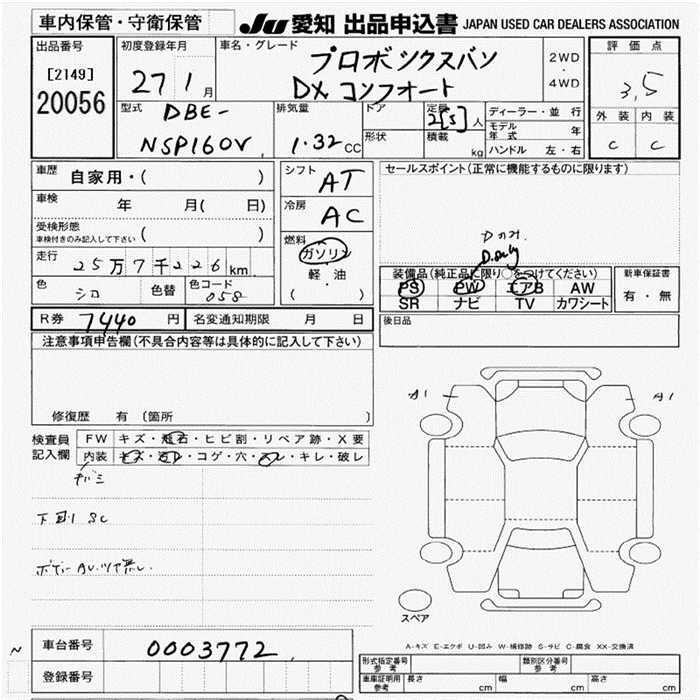 車内保管・守衛保管
JU 愛知 出品申込書 JAPAN USED CAR DEALERS ASSOCIATION
出品番号
[2149]
20056
初度登録年月
27 1 月
車名・グレード
プロボックスバン
DXコンフォート
2WD
・
4WD
評価点
3.5
外装 内装
C C
型式
DBE-
NSP160V
排気量
1.32 CC
ドア
形状
定員
2[5]人
積載
kg
ディーラー・並行
モデル年式 年
ハンドル 左・右
車歴 自家用・( )
車検 年 月( 日)
受検形態
車検付きのみ記入して下さい ( )
走行 25万7千226km
色 シロ 色替 色コード 058
シフト AT
冷房 AC
燃料
ガソリン
軽油
( ・ )
セールスポイント(正常に機能するものに限ります)
D.only
装備品(純正品に限り○をつけてください)
PS PW エアB AW
SR ナビ TV カワシート
新車保証書
有・無
R券 7440 円 名変通知期限 月 日
後日品
注意事項申告欄(不具合内容等は具体的に記入して下さい)
修復歴 有 (箇所 )
検査員記入欄
FW キズ・飛石・ヒビ割・リペア跡・X要
内装 キズ・汚レ・コゲ・穴・スレ・キレ・破レ
下回りSC
A1
A1
スペア
A-キズ E-エクボ U-凹み W-補修跡 S-サビ C-腐食 XX-交換済
車台番号 0003772
登録番号
形式指定番号 参考
類別区分番号 参考
車庫証明用 参考 長さ cm 幅 cm 高さ cm